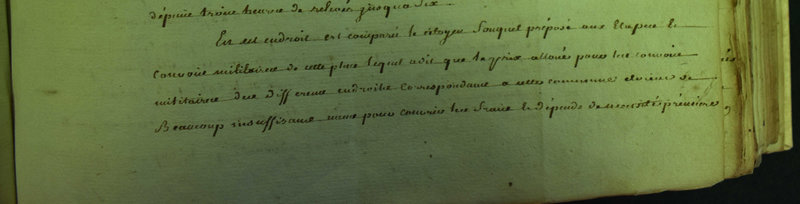 depuis trois heures de relevés jusqua six
En cet endroit est comparu le citoyen fouquet préposé aux Etapes &
Convois militaires de cette place lequel adit que le prix alloué pour les convois
militaires des Differens endroits Correspondans a cette commune etoient de
Beaucoup insuffisans même pour couvrir les fraix & dépends de necessités première